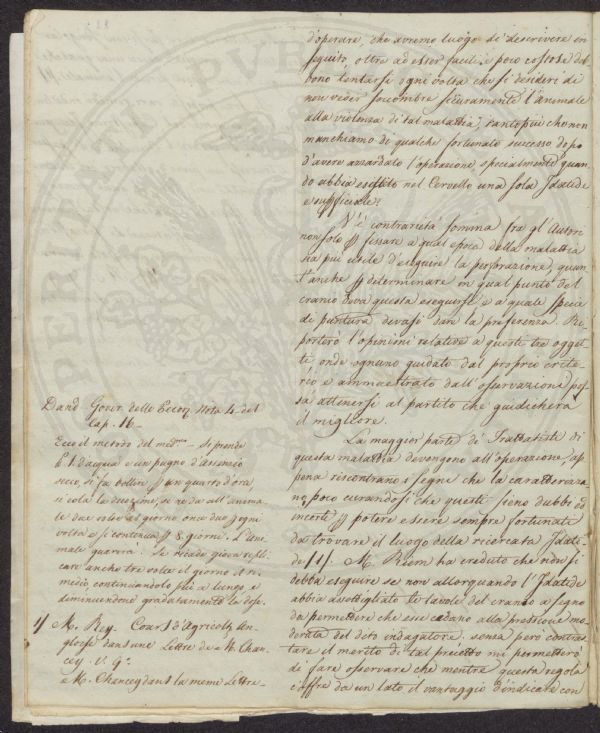 d'operare, che avremo luogo di descrivere in
seguito, oltre ad esser facili, e poco costose deb
bono tentarsi ogni volta che si desideri di
non veder soccombere sicuramente l'animale
alla violenza di tal malattia, tantopiù che non
manchiamo di qualche fortunato successo dopo
d'avere azzardato l'operazione specialmente quan
do abbia esistito nel Cervello una sola Idatide
e superficiale.
V'è contrarietà somma fra gl'Autori
non solo p fissare a qual epoca della malattia
sia più utile d'eseguire la perforazione, quan
t'anche p determinare in qual punto del
cranio deva questa eseguirsi, e a quale specie
di puntura devasi dare la preferenza. Ri
porterò l'opinioni relative a questi tre ogget
ti onde ognuno guidato dal proprio crite
rio e ammaestrato dall'osservazione pos
sa attenersi al partito che giudicherà
il migliore.
La maggior parte di Trattatisti di
questa malattia devengono all'operazione, ap
pena riscontrano i segni che la caratterizza
no, poco curandosi che questi sieno dubbi ed
incerti p potere essere sempre fortunati
da trovare il luogo della ricercata Idati
de (1). M. Riem ha creduto che non si
debba eseguire se non allorquando l'Idatide
abbia assottigliato le tavole del cranio a segno
da permettere che esse cedano alla pressione mo
derata del dito indagatore. senza però contras
tare il merito di tal precetto mi permetterò
di fare osservare che mentre questa regola
ci offre da un lato il vantaggio d'indicare con
Dand. Gover. delle Pecore. Nota 4. del
Cap. 16 -
Ecco il metodo del med.mo - si prende
lb. 1. d'acqua e un pugno d'assenzio
secco, si fa bollire p un quarto d'ora,
si cola la decozione, se ne dà all'anima
le due volte al giorno once due p ogni
volta e si continua p 8. giorni. L'ani
male guarirà. Se ricade giova repli
care anche tre volte il giorno il ri
medio continuandolo più a lungo e
diminuendone gradatamente la dose.
1) M. Rey. Cours d'Agricolt. An
gloise dans une Lettre de M. Chan
cey. V. G.
e M. Chancey dans la meme Lettre -